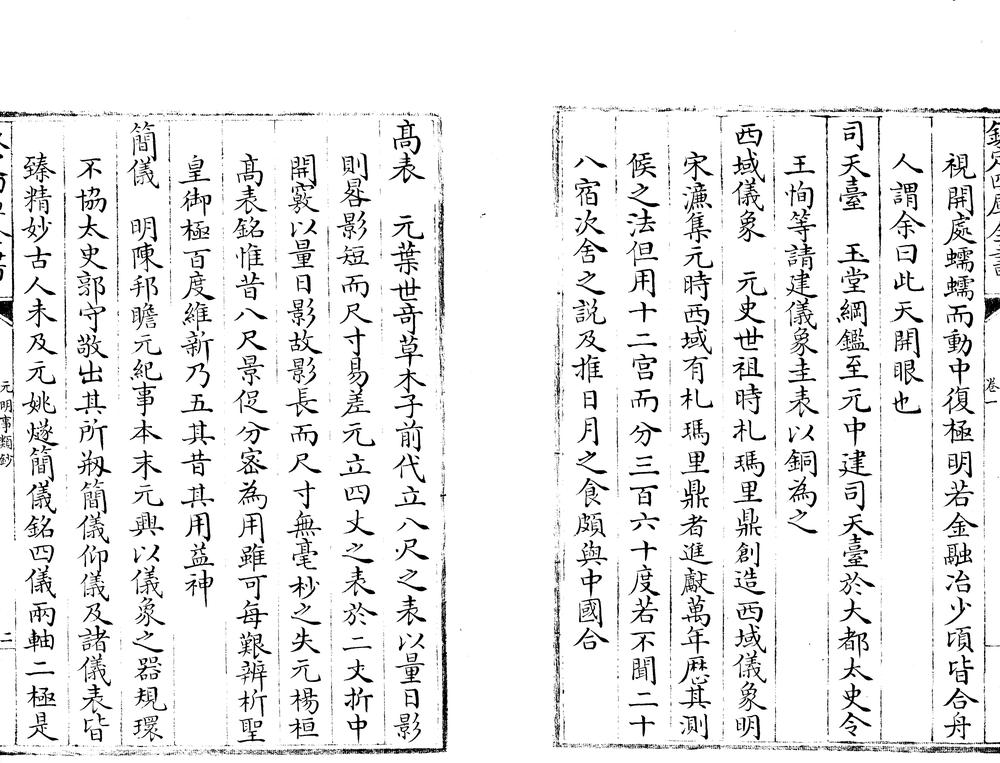 欽定四庫全書
卷一
視開處蠕蠕而動中復極明若金融冶少頃皆合舟
人謂余曰此天開眼也
司天臺　玉堂綱鑑至元中建司天臺於大都太史令
王恂等請建儀象圭表以銅為之
西域儀象　元史世祖時札瑪里鼎創造西域儀象明
宋濂集元時西域有札瑪里鼎者進獻萬年厯其測
候之法但用十二宫而分三百六十度若不聞二十
八宿次舍之説及推日月之食頗與中國合
髙表　元葉世奇草木子前代立八尺之表以量日影
則晷影短而尺寸易差元立四丈之表於二丈折中
開竅以量日影故影長而尺寸無毫杪之失元楊桓
髙表銘惟昔八尺景促分宻為用雖可每艱辨析聖
皇御極百度維新乃五其昔其用益神
簡儀　明陳邦瞻元紀事本末元興以儀象之器規環
不協太史郭守敬出其所剏簡儀仰儀及諸儀表皆
臻精妙古人未及元姚燧簡儀銘四儀兩軸二極是
元明事類鈔
二